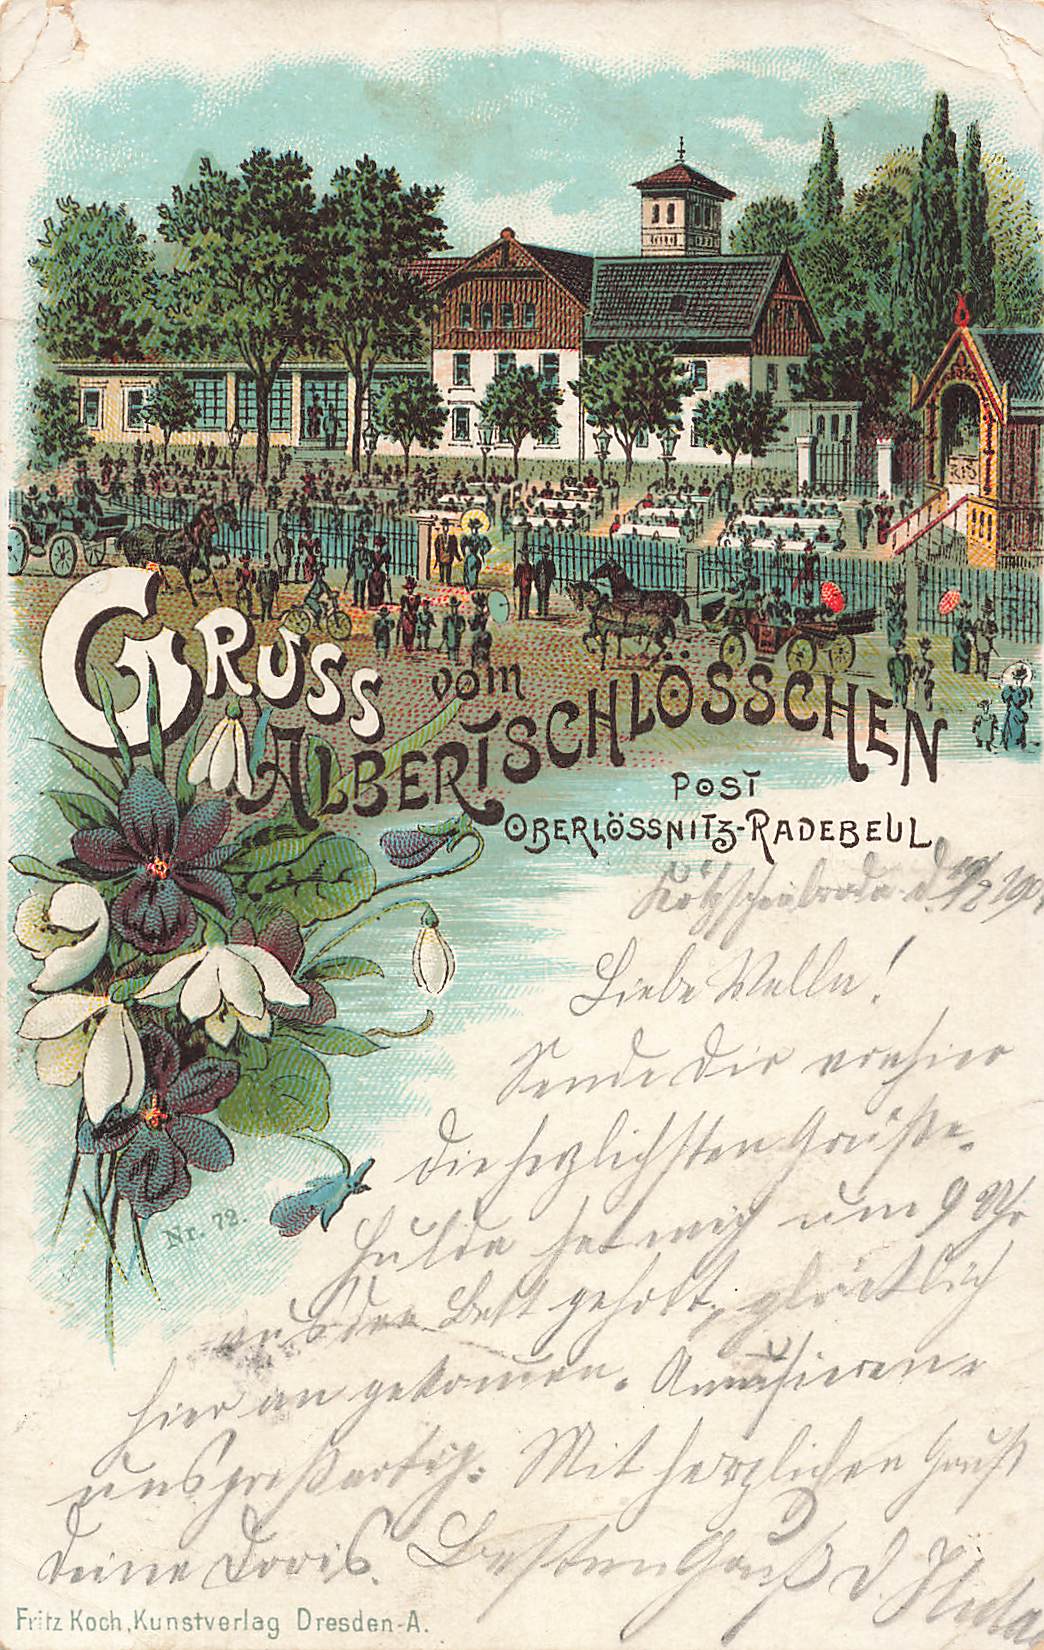 GRUSS vom
ALBERTSCHLÖSSCHEN
POST
OBERLÖSSNITZ-RADEBEUL
Kötzschenbroda d.
Liebe Wella!
Sende Dir von hier
die herzlichsten Grüße.
Hulda hat mich um 9 Uhr
aus dem Bett geholt, glücklich
hier an gekommen. Amüsieren
uns großartig. Mit herzlichen Gruß
deine Doris. Besten Gruß d. Hulda
Nr. 72.
Fritz Koch, Kunstverlag Dresden-A.